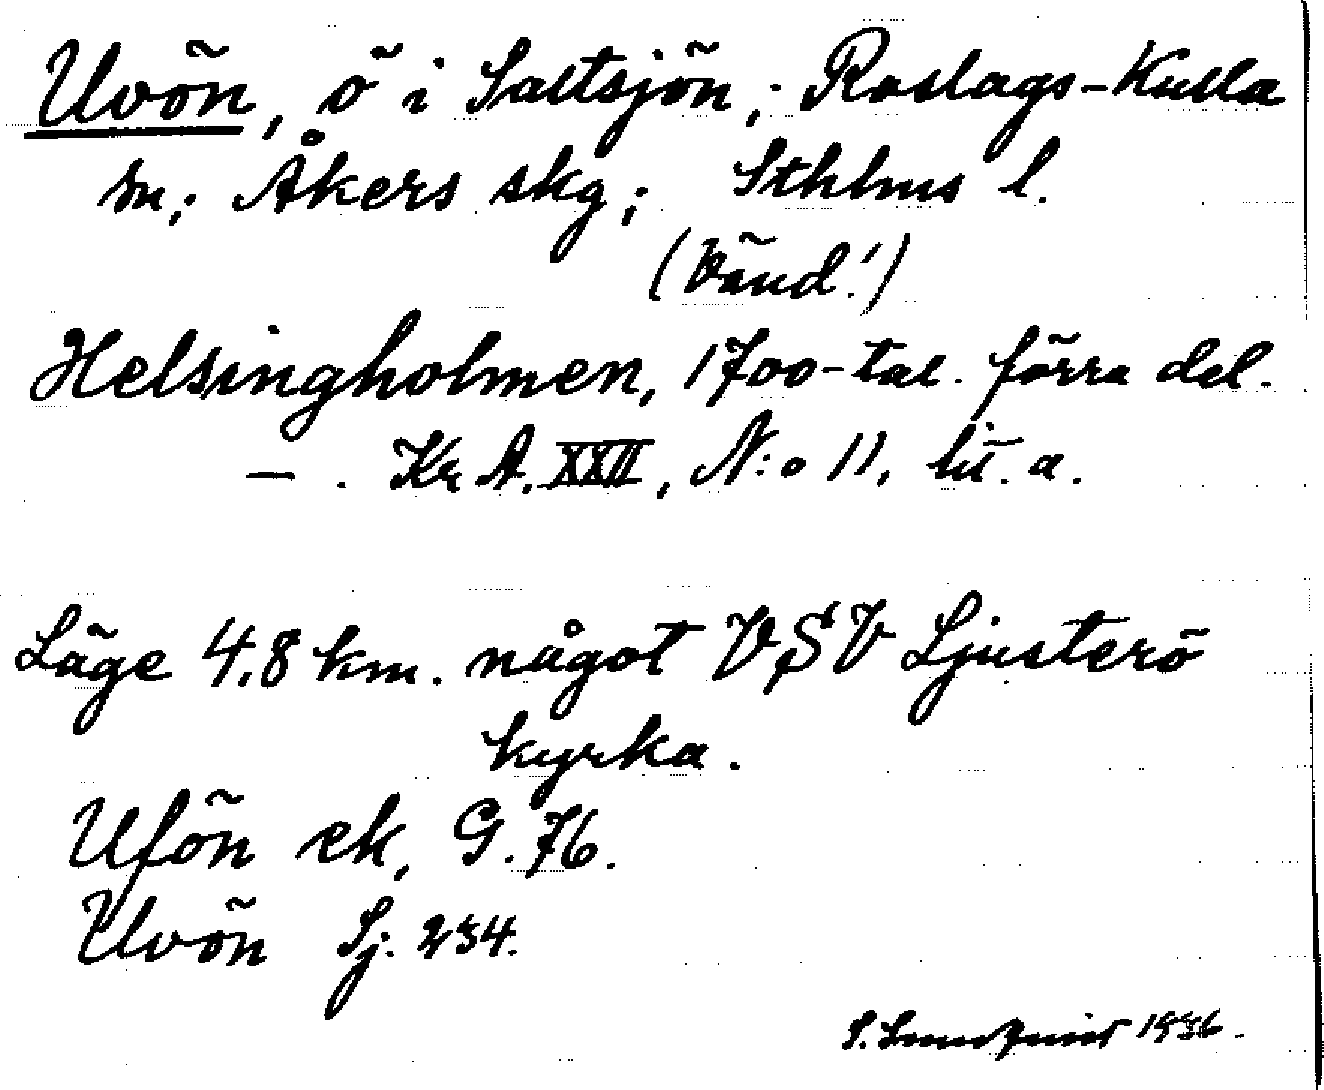 Uvön, ö i Saltsjön; Roslags-Kulla
sn; Åkers skg; Sthlms l.
(Vänd!)
Helsingholmen, 1700-tal. förra del.
— . Kr A. XXII, N:o 11, lit. a.
Läge 4.8 km. något VSV Ljusterö
kyrka.
Ufön ek, G. 76.
Uvön Sj. 234.
S. Lundquist 1936.